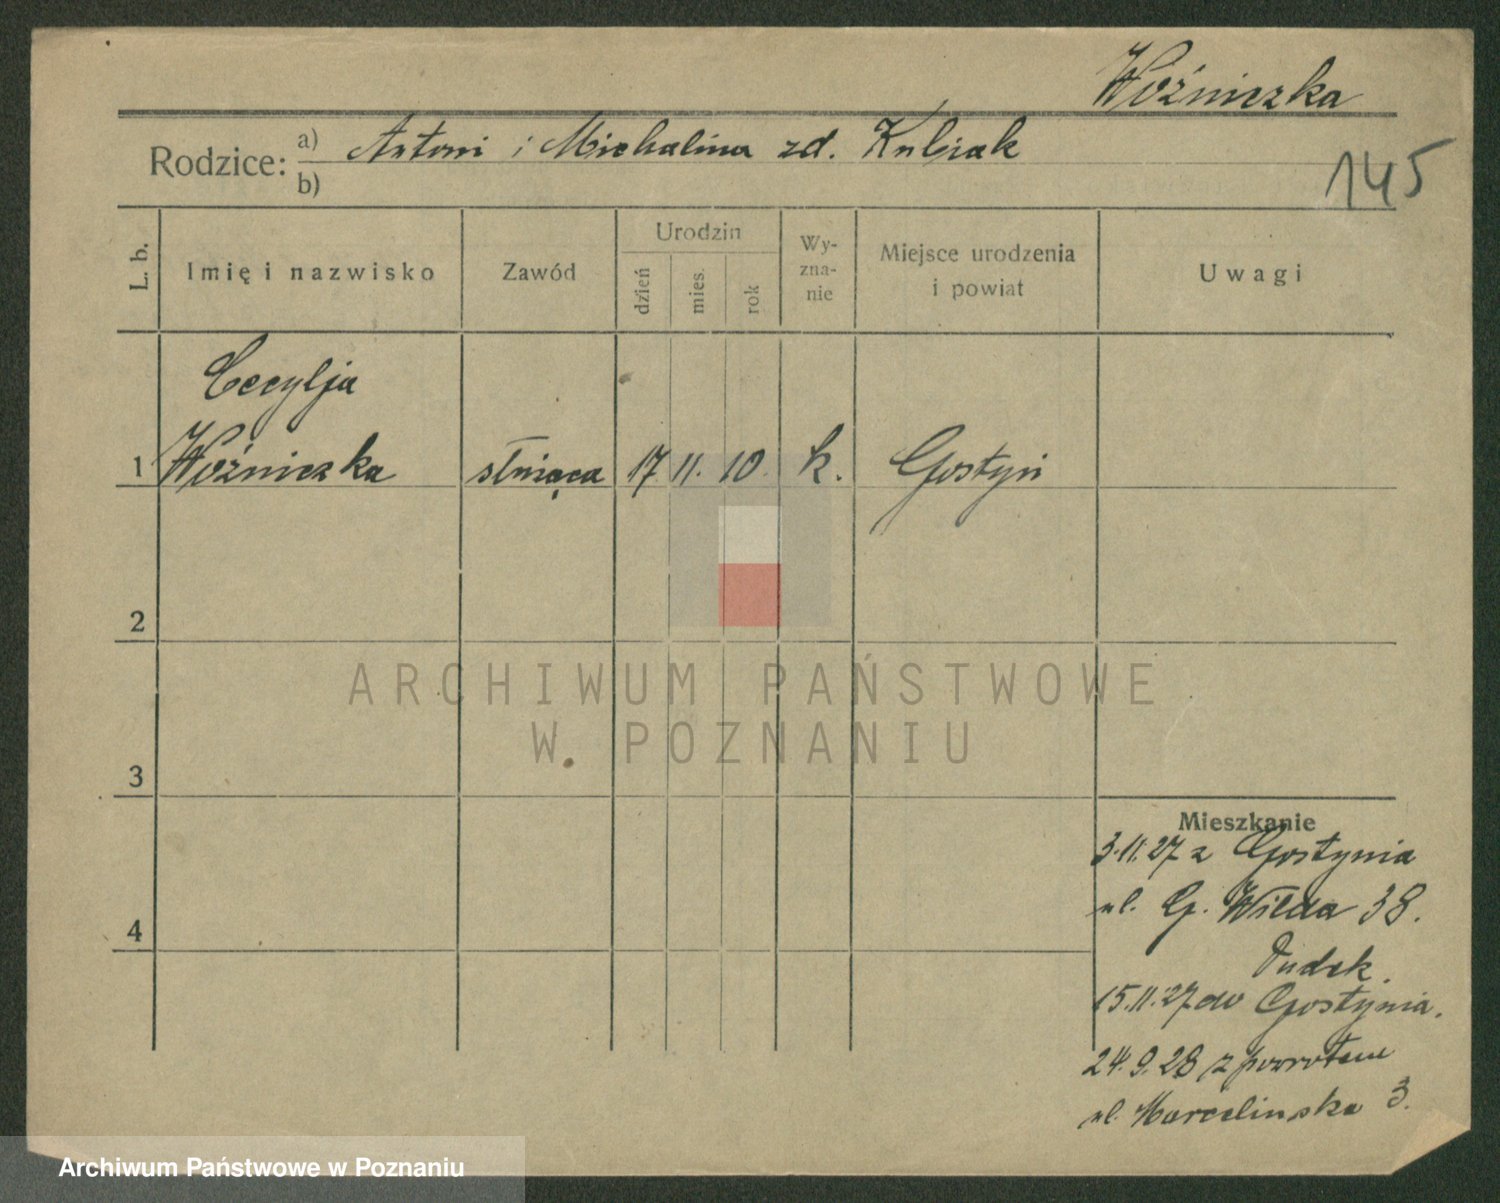 Woźniczka
Rodzice: a) Antoni i Michalina zd. Kubiak
b)
145
L. b.
Imię i nazwisko
Zawód
Urodzin
dzień
mies.
rok
Wy-
zna-
nie
Miejsce urodzenia
i powiat
Uwagi
Cecylja
1 Woźniczka służąca 17 11. 10. k. Gostyń
2
ARCHIWUM PAŃSTWOWE
W POZNANIU
3
Mieszkanie
3.11.27 z Gostynia
ul. G. Wilda 38.
4
Dudek.
15.11.27 do Gostynia.
24.9.28 z powrotem
ul. Marcelińska 3.
Archiwum Państwowe w Poznaniu